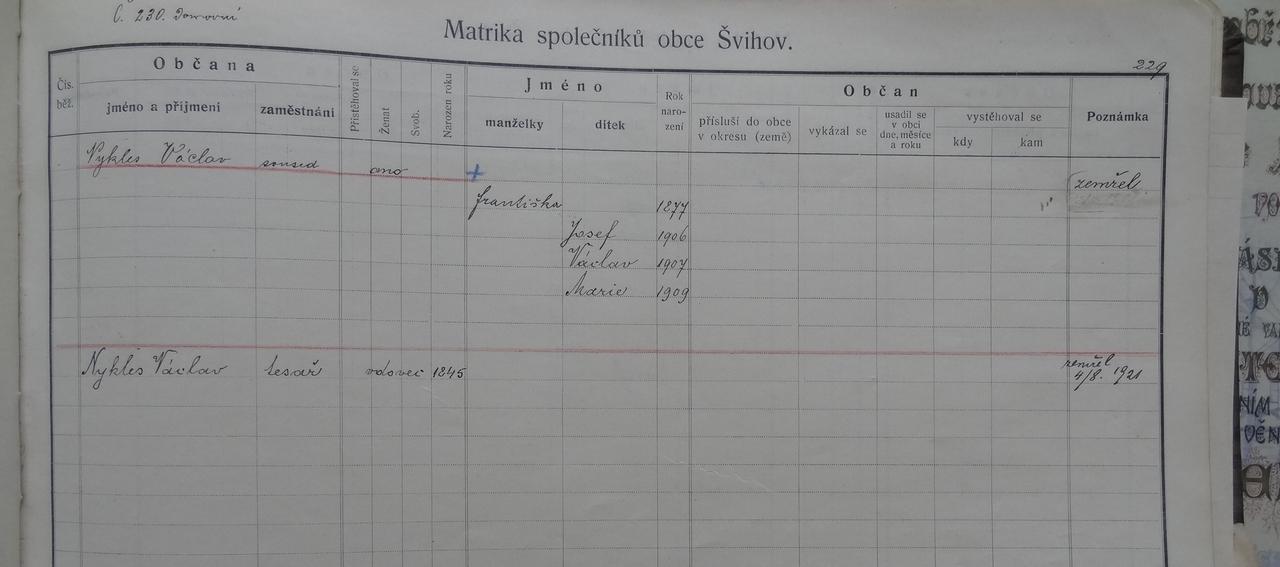 Č. 230. Domovní
Matrika společníků obce Švihov.
229
Čís. běž.
Občana
jméno a příjmení
zaměstnání
Přistěhoval se
Ženat
Svob.
Narozen roku
Jméno
manželky
dítek
Rok naro- zení
Občan
přísluší do obce v okresu (země)
vykázal se
usadil se v obci dne, měsíce a roku
vystěhoval se
kdy
kam
Poznámka
Nykles Václav soused ano + zemřel
Františka 1877
Josef 1906
Václav 1907
Marie 1909
Nykles Václav tesař vdovec 1845 zemřel 4/8. 1921